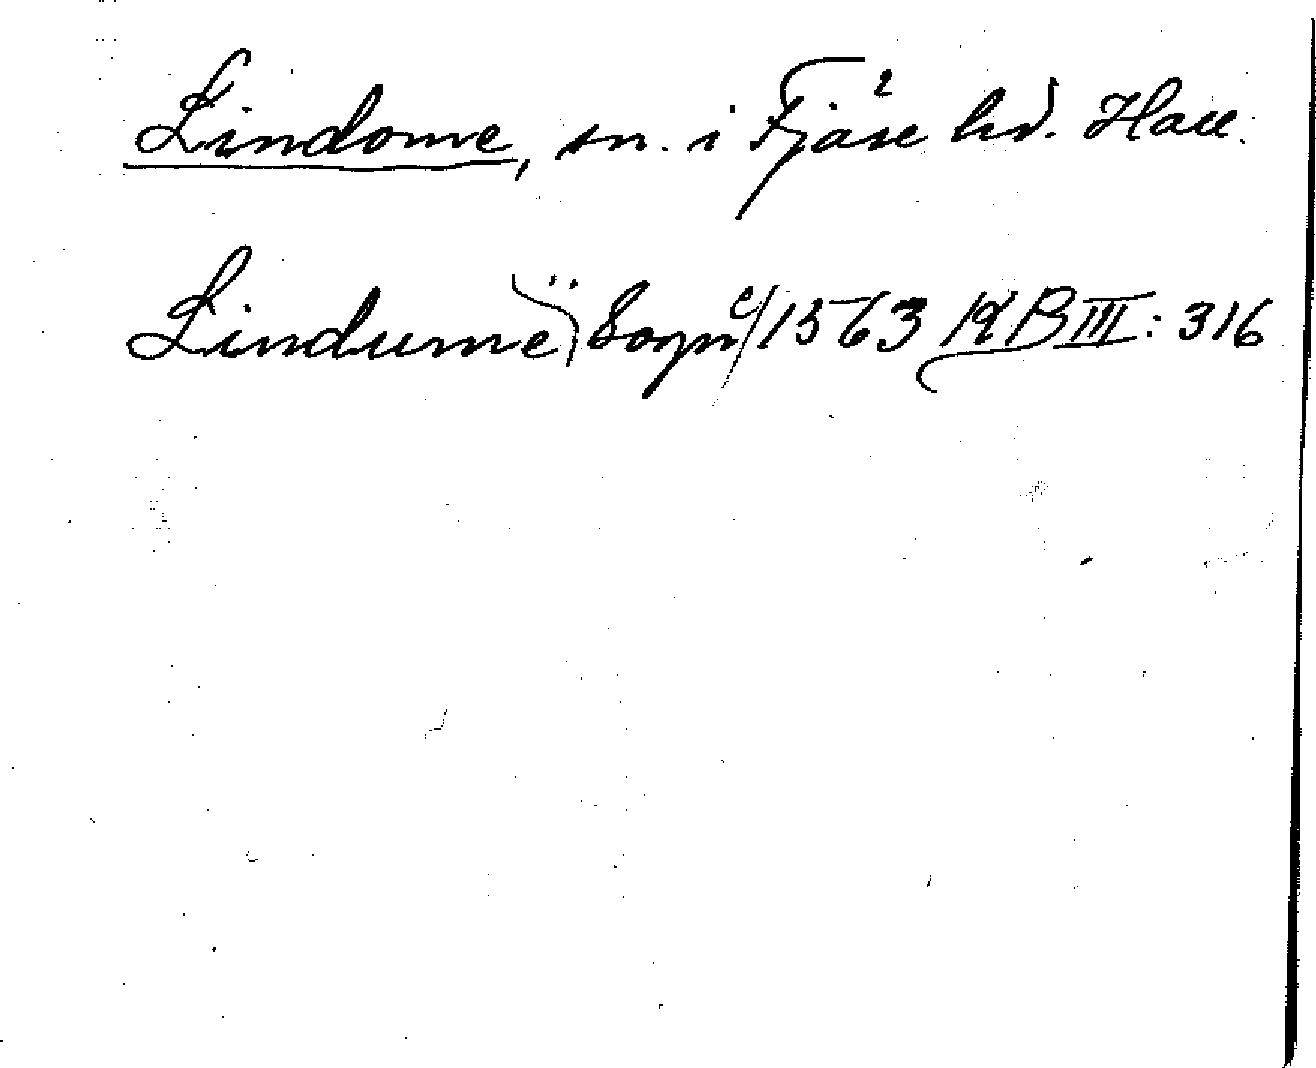 Lindome, sn. i Fjäre hd. Hall.
Lindumë) Sogn 1563 KB III: 316